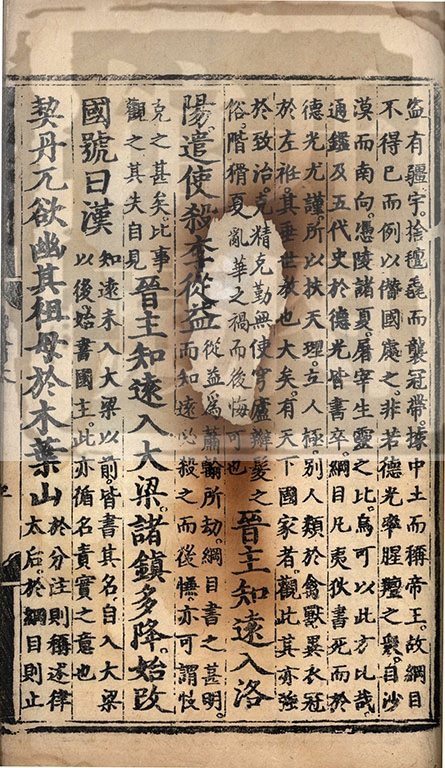 盜有疆宇。捨氊毳襲冠帶。據中土而稱帝王。故綱目
不得已而例以僭國處之。非若德光率腥羶之衆。自沙
漠而南向。憑陵諸夏。屠宰生靈之比。烏可以此方比哉。
通鑑及五代史於德光皆書卒。綱目凡夷狄書死而於
德光尤謹。所以扶天理。立人極。別人類於禽獸異衣冠
於左袵。其垂世教也大矣。有天下國家者。觀此其亦強
於致治。克精克勤。無使穹廬辮髮之
俗階猾夏亂華之禍而後悔可也
晉主知遠入洛
陽。遣使殺李從益
從益爲蕭翰所劫。綱目書之甚明。
而知遠必殺之而後慊。亦可謂忮
克之甚矣。此事
觀之其失自見
晉主知遠入大梁。諸鎮多降。始改
國號曰漢
知遠未入大梁以前。皆書其名。自入大梁
以後始書國主。此亦循名責實之意也
契丹兀欲幽其祖母於木葉山
於分注則稱述律
太后。於綱目則止